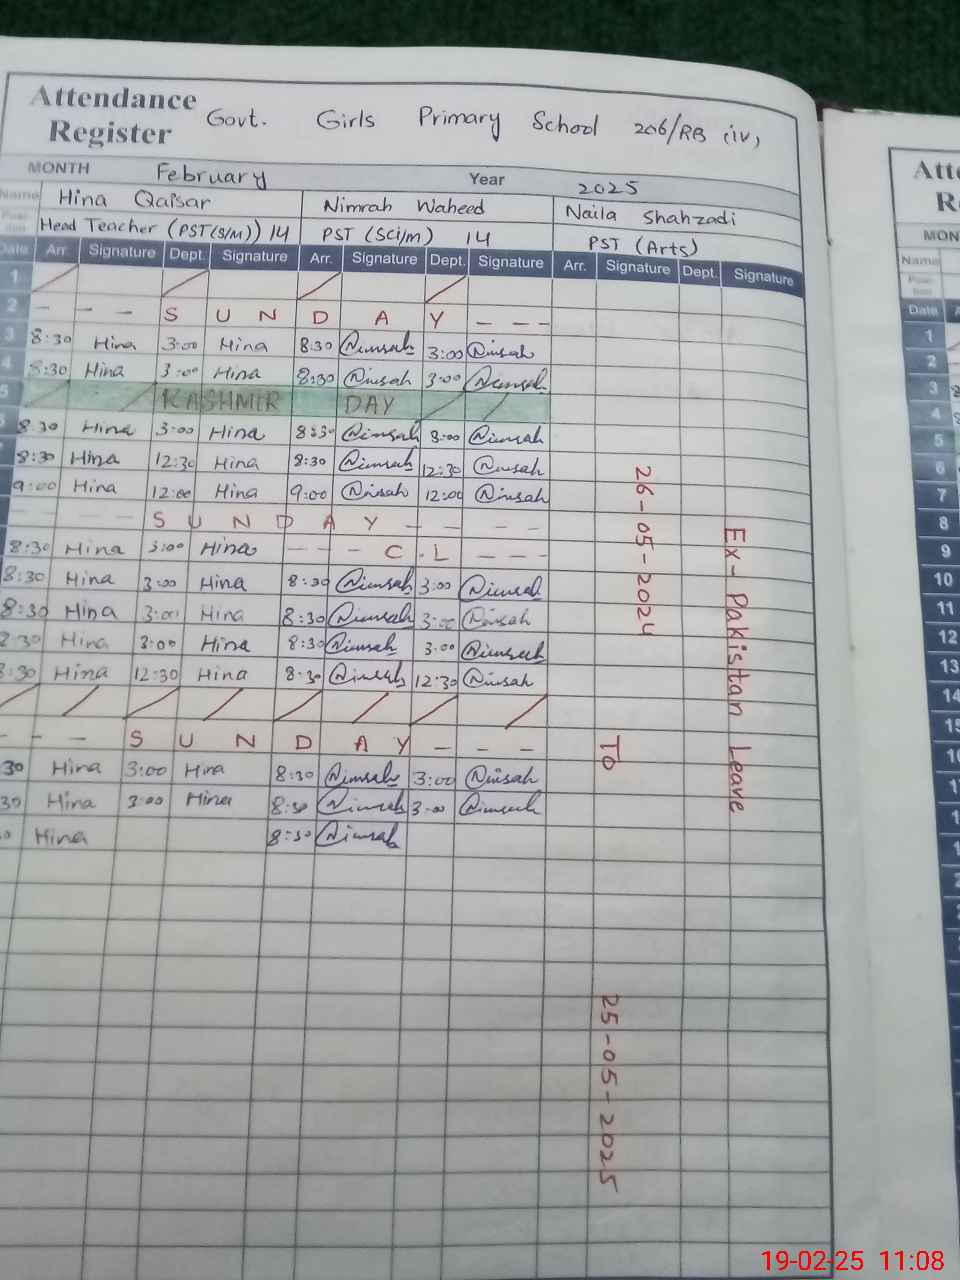 Attendance Register Govt. Girls Primary School 206/RB (iv)
MONTH February Year 2025
Name Hina Qaisar Nimrah Waheed Naila Shahzadi
Head Teacher (PST(S/M)) 14 PST (Sci/m) 14 PST (Arts)
Date Arr. Signature Dept. Signature Arr. Signature Dept. Signature Arr. Signature Dept. Signature
1
2 - - - S U N D A Y - - -
3 8:30 Hina 3:00 Hina 8:30 Nimrah 3:00 Nimrah
4 8:30 Hina 3:00 Hina 8:30 Nimrah 3:00 Nimrah
5 KASHMIR DAY
8:30 Hina 3:00 Hina 8:30 Nimrah 3:00 Nimrah
8:30 Hina 12:30 Hina 8:30 Nimrah 12:30 Nimrah
9:00 Hina 12:00 Hina 9:00 Nimrah 12:00 Nimrah
- - - S U N D A Y - - - -
8:30 Hina 3:00 Hina - - - C.L - - -
8:30 Hina 3:00 Hina 8:30 Nimrah 3:00 Nimrah
8:30 Hina 3:00 Hina 8:30 Nimrah 3:00 Nimrah
:30 Hina 3:00 Hina 8:30 Nimrah 3:00 Nimrah
8:30 Hina 12:30 Hina 8:30 Nimrah 12:30 Nimrah
- - - S U N D A Y - - -
30 Hina 3:00 Hina 8:30 Nimrah 3:00 Nimrah
30 Hina 3:00 Hina 8:30 Nimrah 3:00 Nimrah
Hina 8:30 Nimrah
26-05-2024
To
25-05-2025
Ex-Pakisitan Leave
Atte
R
MON
Name
Date
1
2
3
4
5
6
7
8
9
10
11
12
13
14
15
19-02-25 11:08